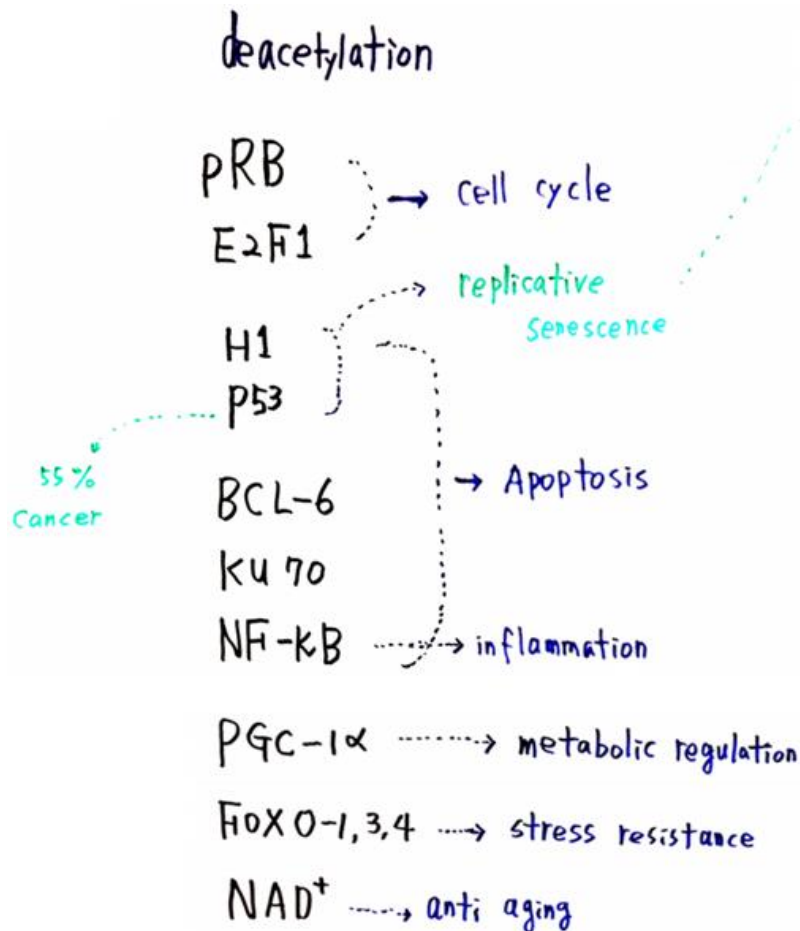 deacetylation
pRB
E2F1
→ cell cycle
replicative
senescence
H1
P53
55%
cancer
BCL-6
→ Apoptosis
KU 70
NF-KB → inflammation
PGC-1α → metabolic regulation
FOXO-1,3,4 → stress resistance
NAD+ → anti aging